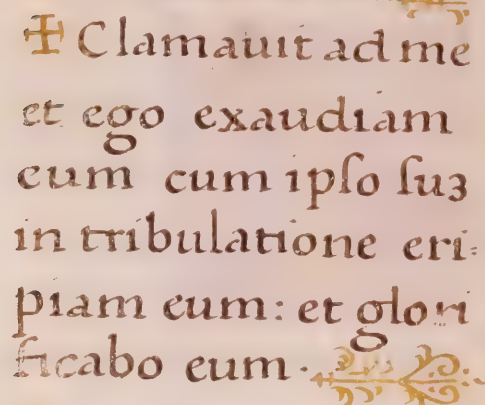 ✠ Clamauit ad me
et ego exaudiam
eum cum ipſo ſuꝫ
in tribulatione eri-
piam eum: et glori
ficabo eum.